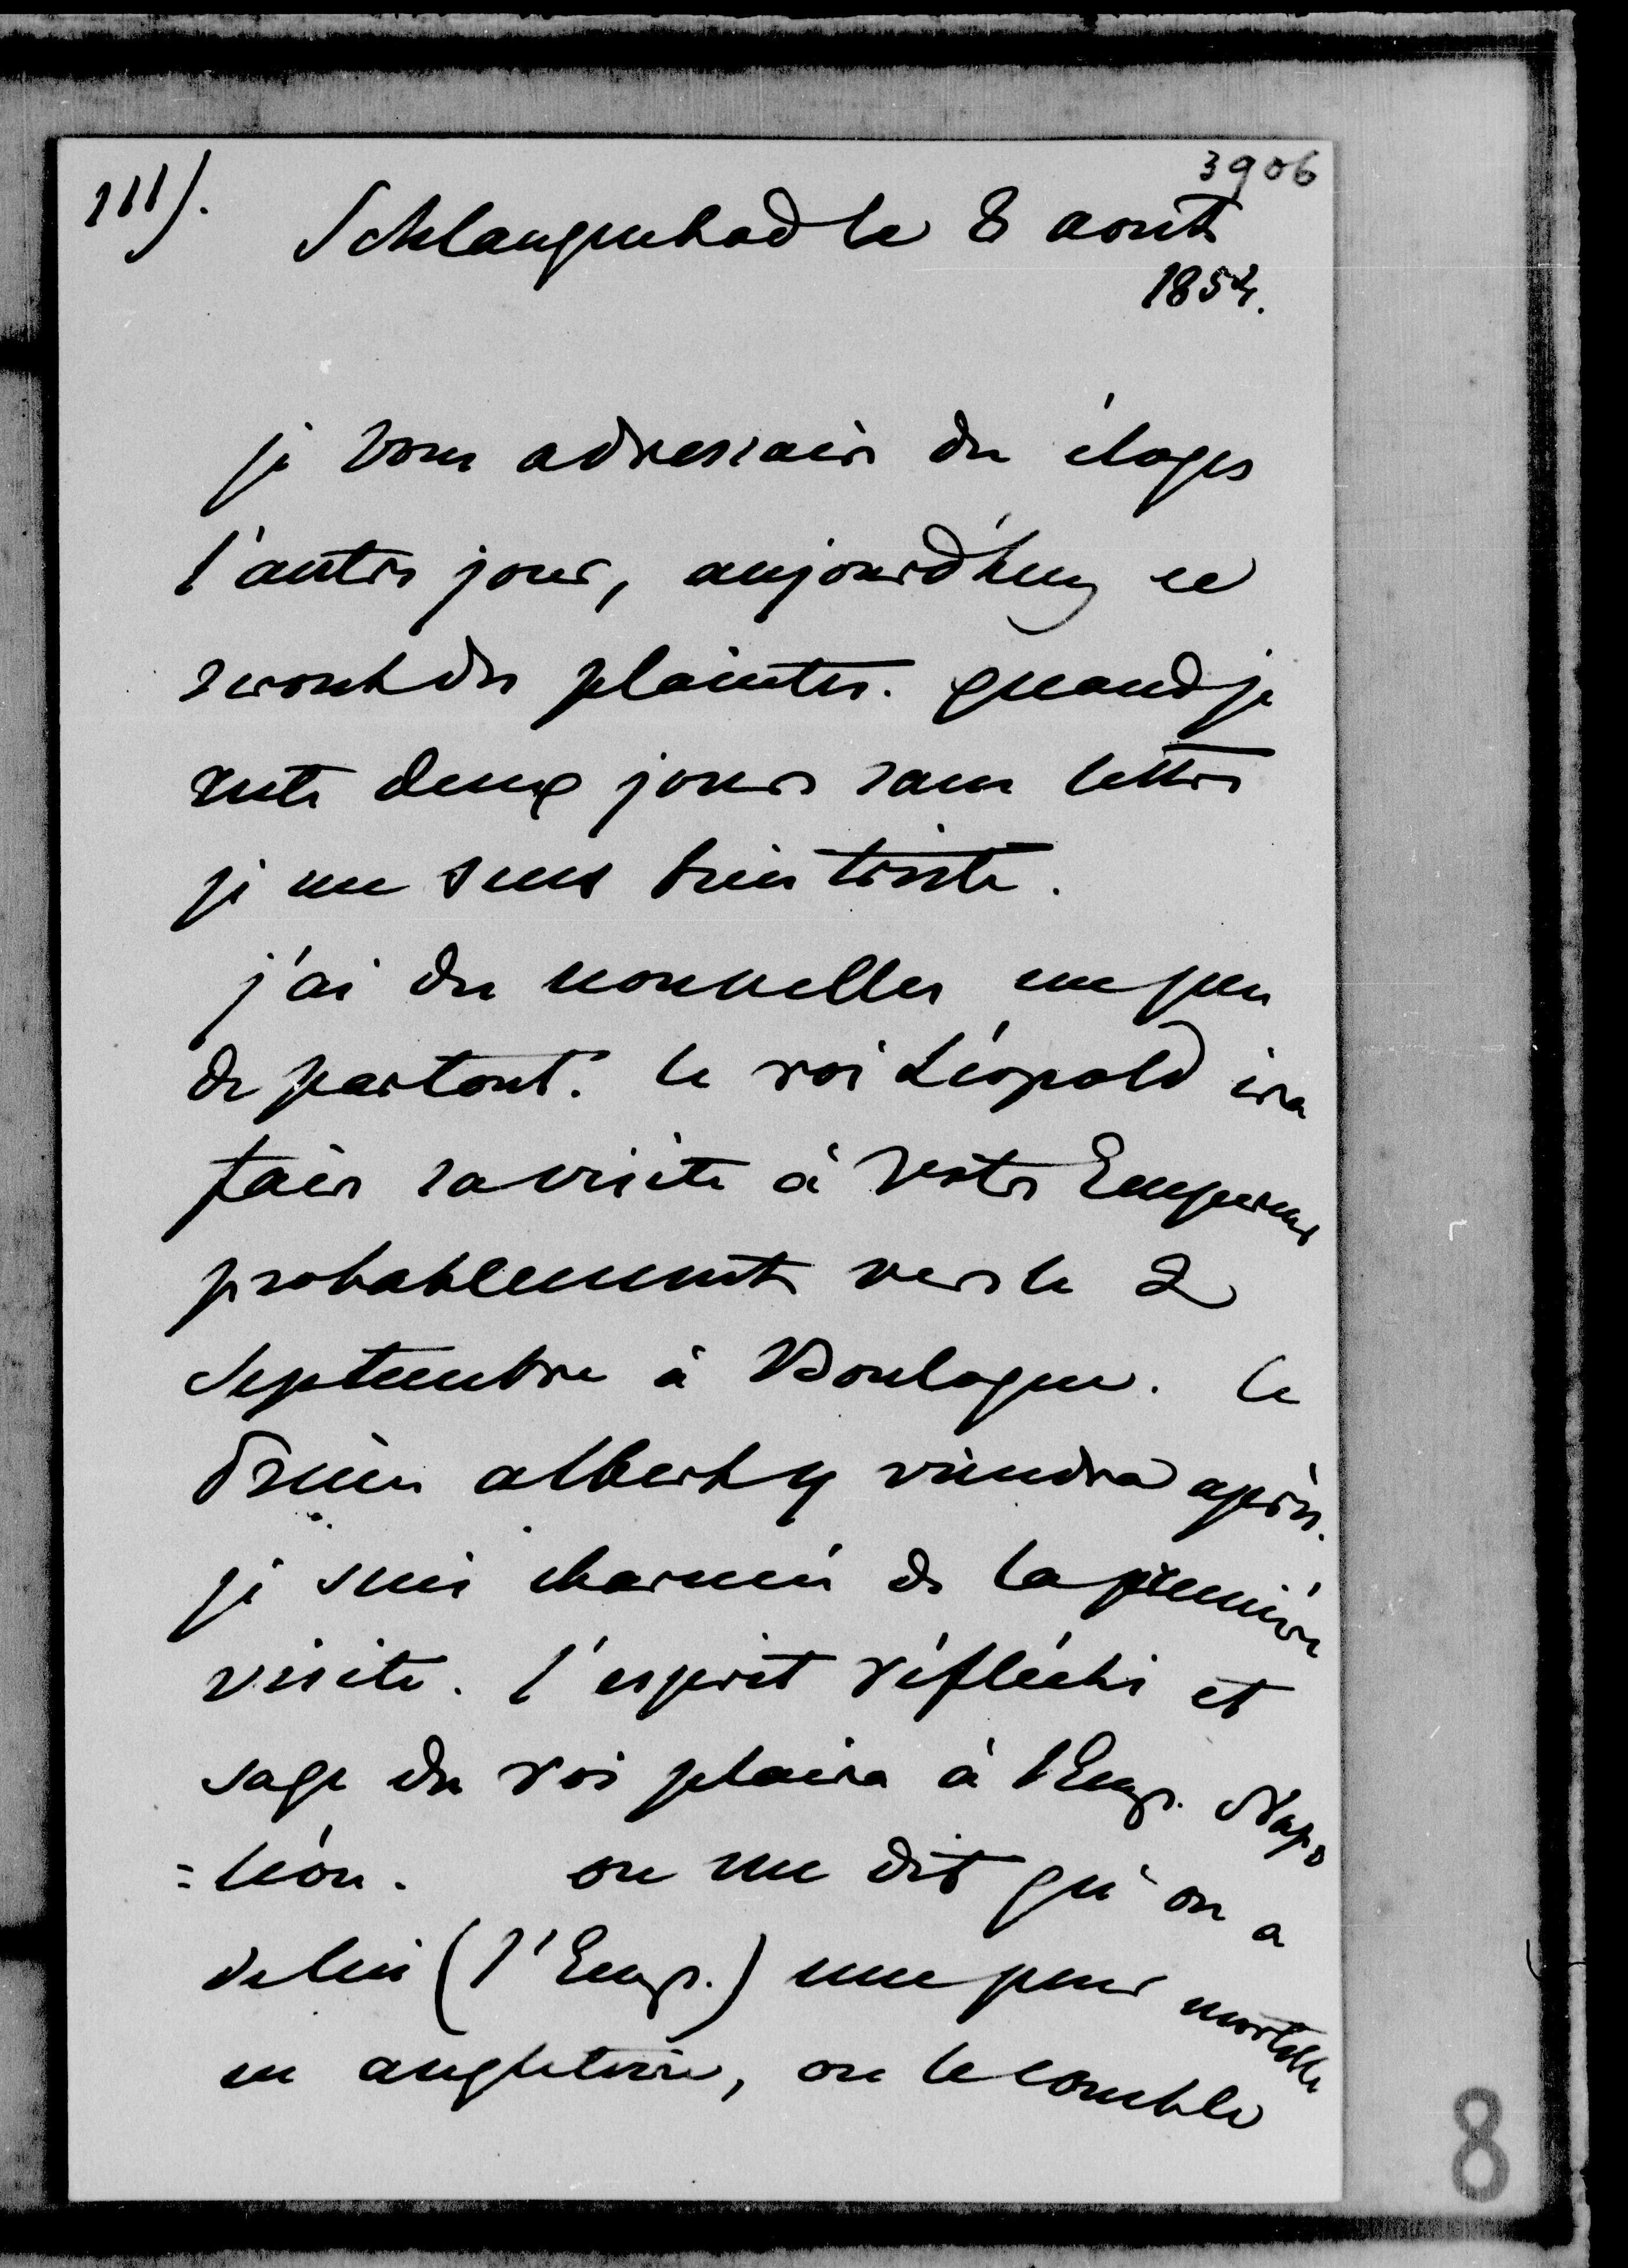 3906
111).
Schlangenbad le 8 aout
1854.
je vous adressais des éloges
l'autre jour, aujourd'huy ce
seront des plaintes. quand je
reste deux jours sans lettre
je me sens bien triste.
j'ai des nouvelles un peu
de partout. le roi Léopold ira
faire sa visite à votre Empereur
probablement vers le 2
Septembre à Boulogne. le
Prince albert y viendra après.
je suis charmée de la première
visite. l'esprit réfléchi et
sage du roi plaira à l'Emp. Napo
=léon. on me dit qu'on a
de lui (l'Emp.) une peur mortelle
en angleterre, on le comble
8